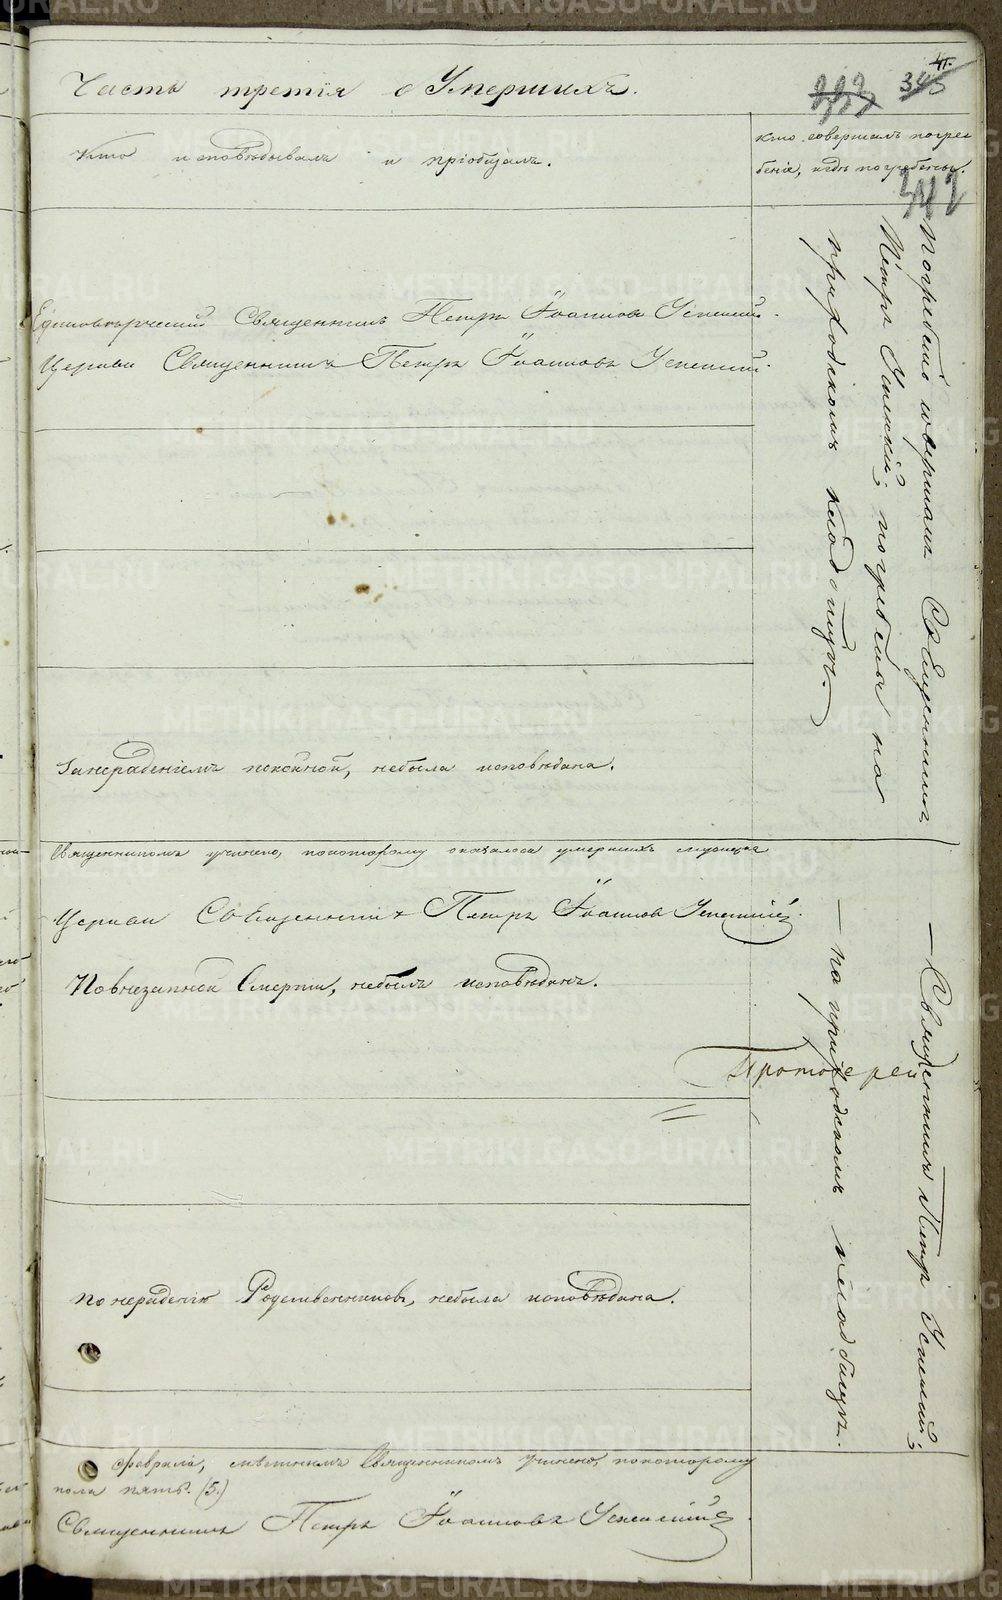 Часть третія о Умершихъ.
41.
345
342
Кто исповѣдывалъ и пріобщалъ.
Кто совершалъ погре
беніе, и гдѣ погребены.
Единовѣрческій Священникъ Петръ Іоанновъ Успенскій.
Церкви Священникъ Петръ Іоанновъ Успенскій.
Погребеніе совершалъ Священникъ
Петръ Успенскій; погребены на
приходскомъ кладбищѣ.
Занераденіемъ покойной, небыла исповѣдана.
Священникомъ учинено, покоторому оказалося умершихъ мужеска
Церкви Священникъ Петръ Іоанновъ Успенскій
Повнезапной Смерти, небылъ исповѣданъ.
Протоіерей
— Священникъ Петръ Успенскій;
— на приходскомъ кладбищѣ.
По нерадѣнію Родственниковъ, небыла исповѣдана.
Февраля, мѣстнымъ Священникомъ учинено, покоторому
пола пять. (5.)
Священникъ Петръ Іоанновъ Успенскій
METRIKI.GASO-URAL.RU